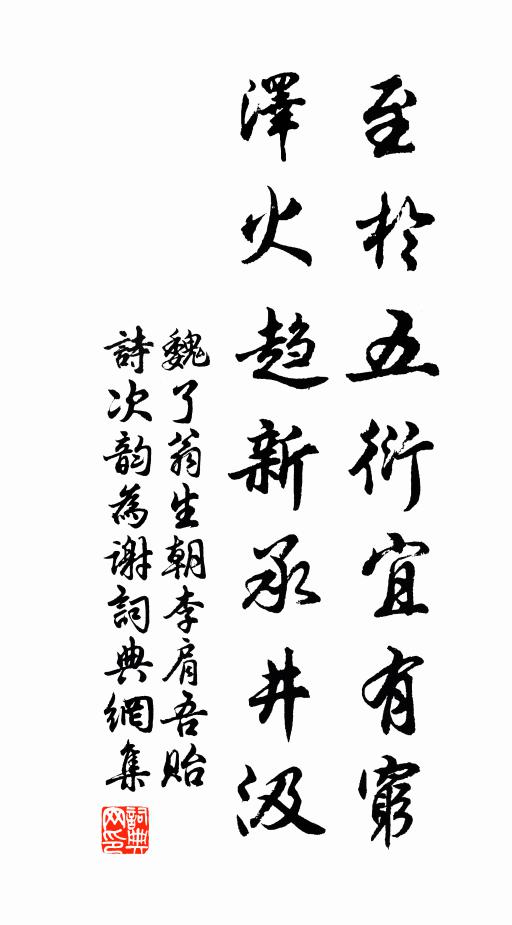 至於五衍宜有窮
澤火趋新承井汲
魏了翁生朝李肩吾貽
詩次韵為谢詞典網集
詞典
网印